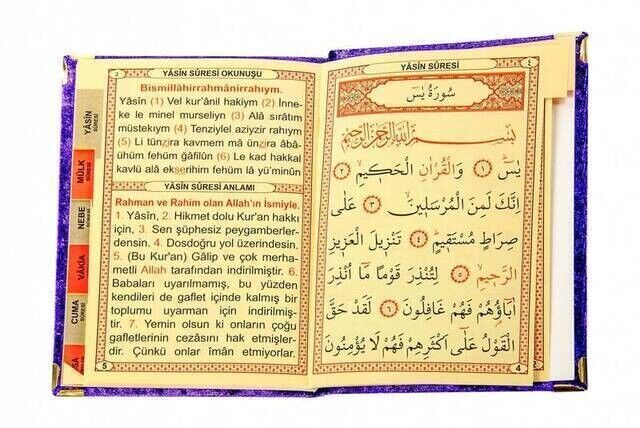 YÂSİN SÛRESİ OKUNUŞU
Bismillâhirrahmânirrahıym.
Yâsîn (1) Vel kur'ânil hakiym (2) İnne-
ke le minel murseliyn (3) Alâ sırâtım
müstekıym (4) Tenziylel aziyzir rahıym
(5) Li tünzira kavmem mâ ünzira âbâ-
ühüm fehüm ğâfilûn (6) Le kad hakkal
kavlü alâ ekserihim fehüm lâ yü'minûn
YÂSİN SÛRESİ ANLAMI
Rahman ve Rahim olan Allah'ın İsmiyle.
1. Yâsîn, 2. Hikmet dolu Kur'an hakkı
için, 3. Sen şüphesiz peygamberler-
densin. 4. Dosdoğru yol üzerindesin.
5. (Bu Kur'an) Gâlip ve çok merha-
metli Allah tarafından indirilmiştir. 6.
Babaları uyarılmamış, bu yüzden
kendileri de gaflet içinde kalmış bir
toplumu uyarman için indirilmiş-
tir. 7. Yemin olsun ki onların çoğu
gafletlerinin cezasını hak etmişler-
dir. Çünkü onlar îman etmiyorlar.
5
YÂSİN
SÛRESİ
MÜLK
SÛRESİ
NEBE
SÛRESİ
VÂKIA
SÛRESİ
CUMA
SÛRESİ
YÂSİN SÛRESİ
٤
سُورَةُ يٰسٓ
بِسْمِ اللّٰهِ الرَّحْمٰنِ الرَّحِيمِ
يٰسٓ ﴿١﴾ وَالْقُرْاٰنِ الْحَكِيمِ ﴿٢﴾
اِنَّكَ لَمِنَ الْمُرْسَلِينَ ﴿٣﴾ عَلٰى
صِرَاطٍ مُسْتَقِيمٍ ﴿٤﴾ تَنْزِيلَ الْعَزِيزِ
الرَّحِيمِ ﴿٥﴾ لِتُنْذِرَ قَوْمًا مَٓا اُنْذِرَ
اٰبَٓاؤُ۬هُمْ فَهُمْ غَافِلُونَ ﴿٦﴾ لَقَدْ حَقَّ
الْقَوْلُ عَلٰٓى اَكْثَرِهِمْ فَهُمْ لَا يُؤْمِنُونَ
4